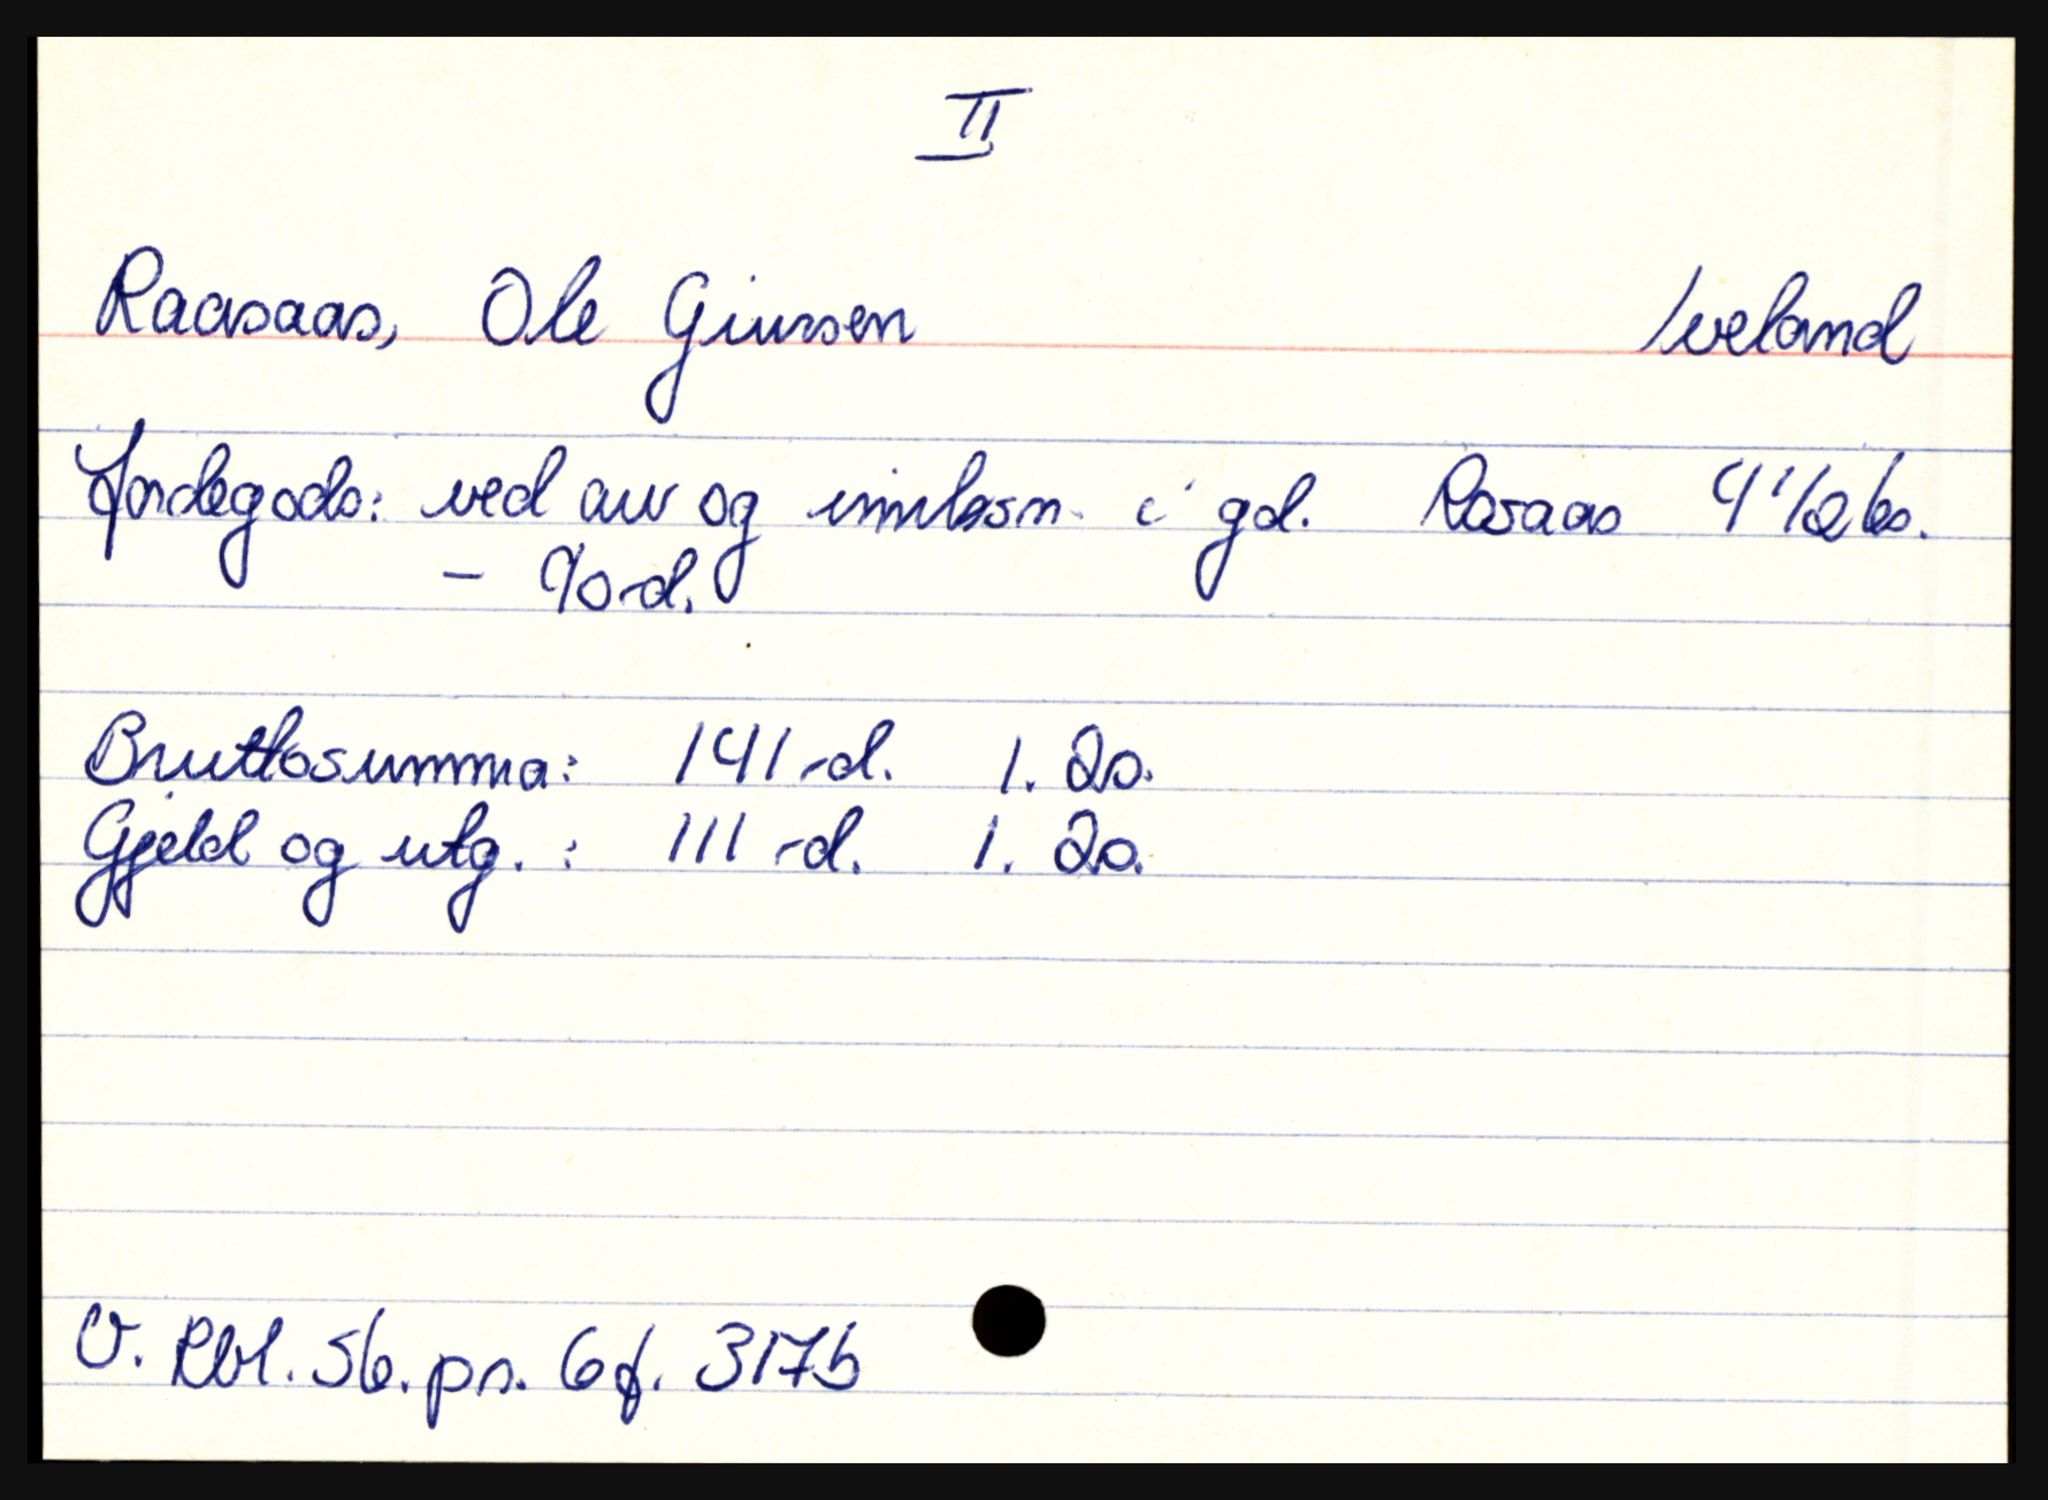 II
Raasaas, Ole Giursen Iveland
Jordegods: ved arv og innløsn. i gd. Rosaas 4 1/2 ks.
- 90 rd.
Bruttosumma: 141 rd. 1. 20.
Gjeld og utg. : 111 rd. 1. 20.
V. Rbl. 56. pr. 6 f. 317b